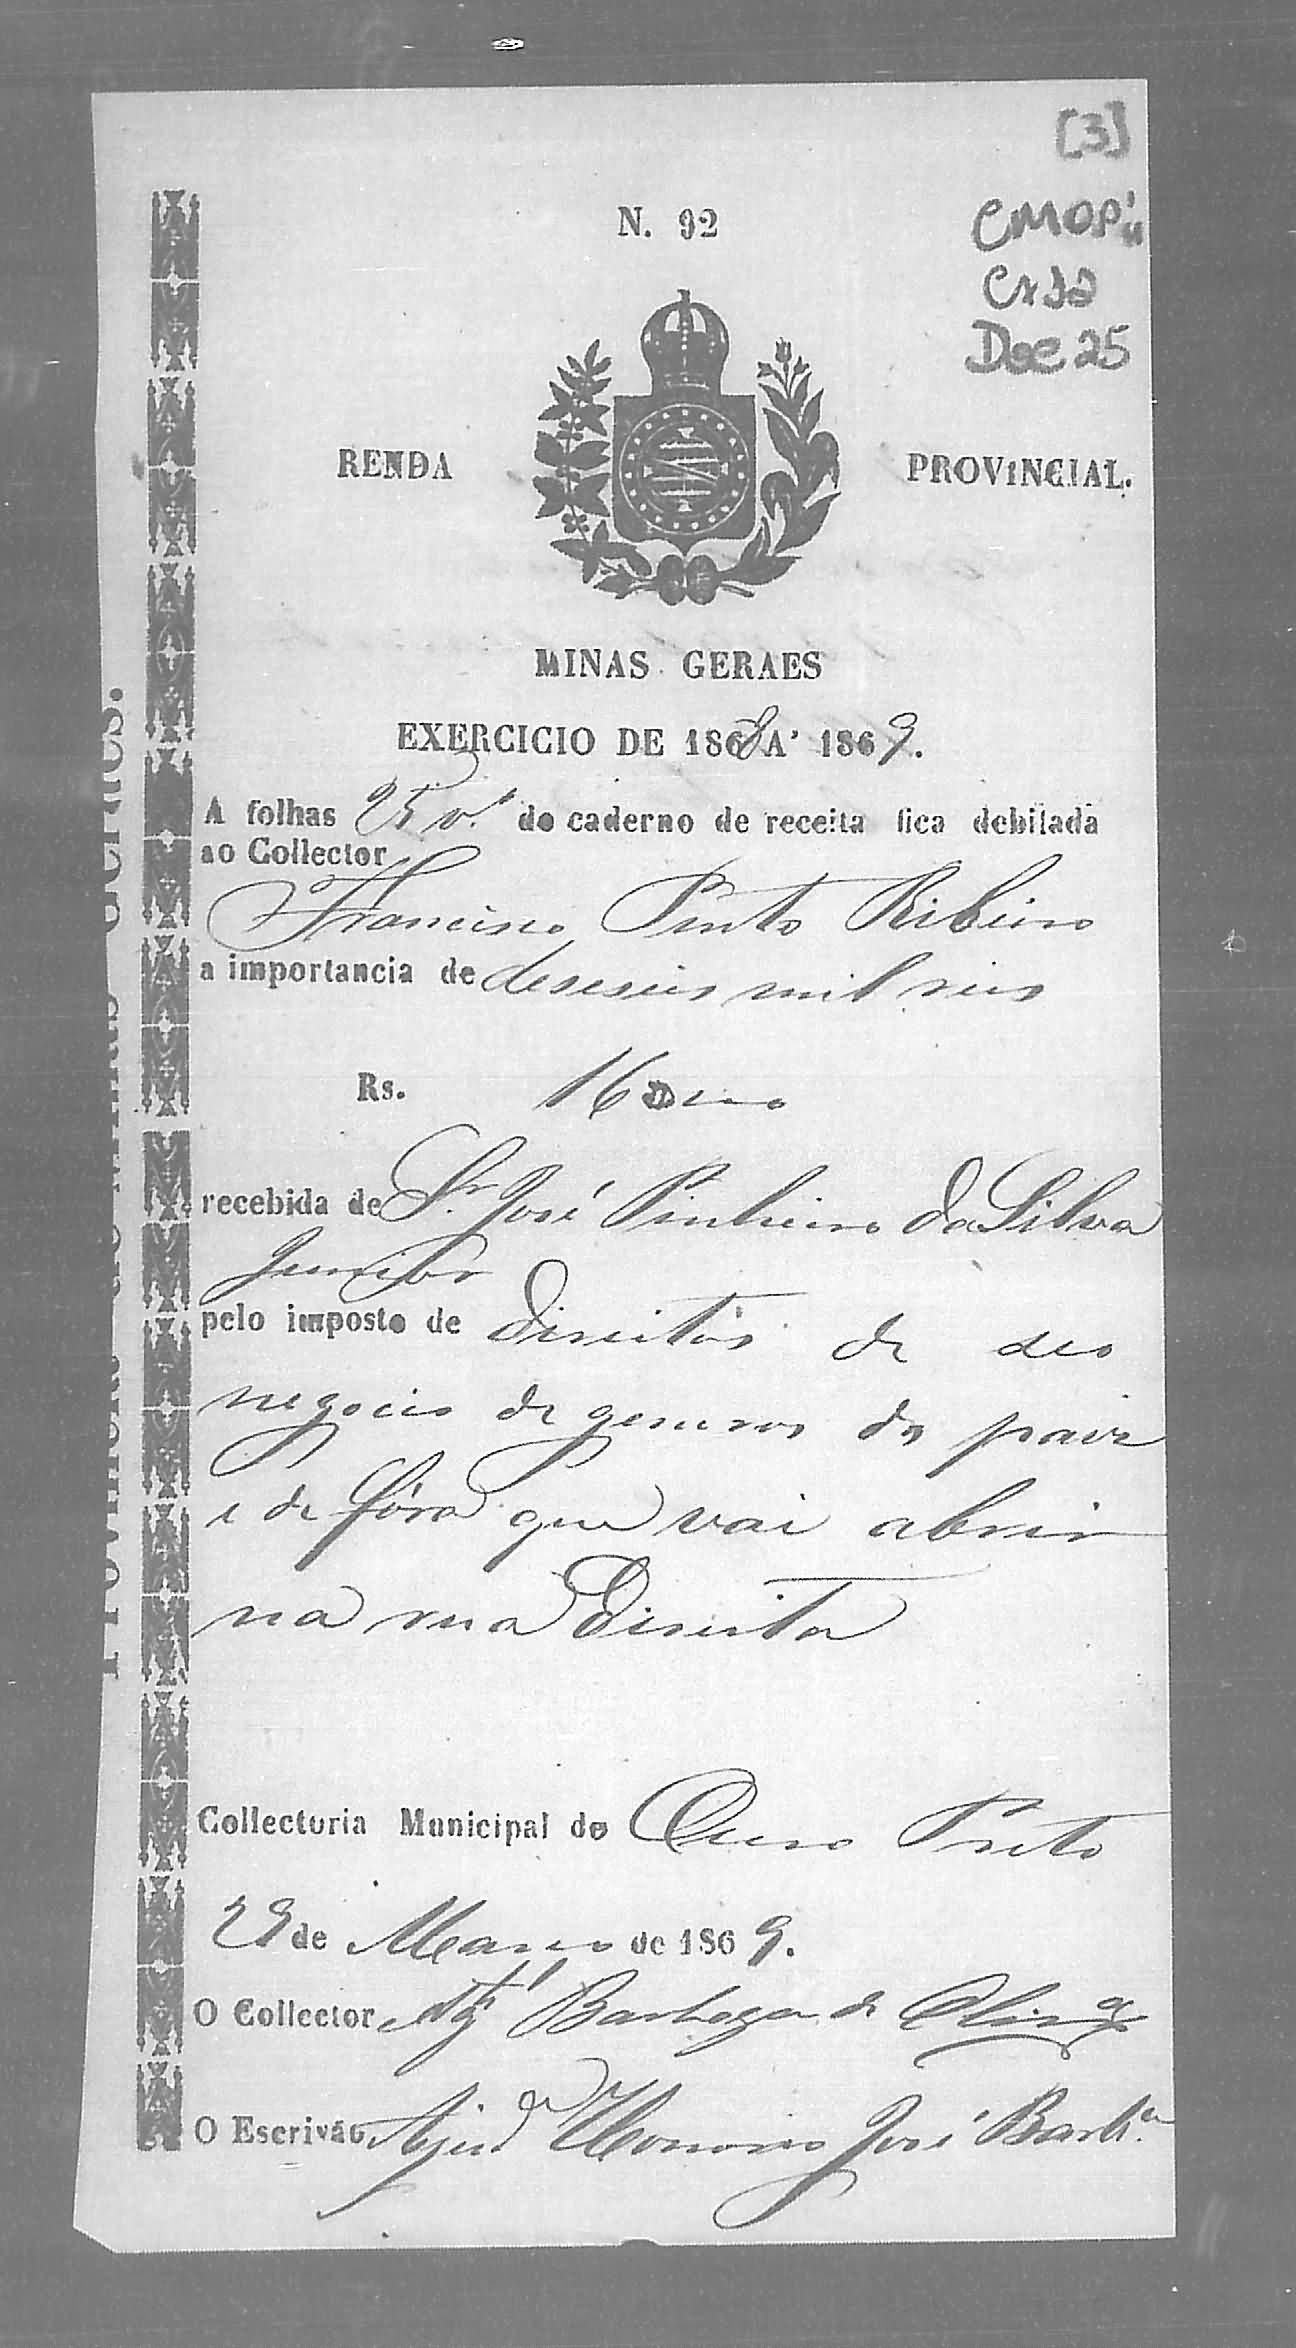 [3]
N. 92
CMOP
Cx12
Doc 25
RENDA PROVINCIAL.
MINAS GERAES
EXERCICIO DE 1868 A' 1869.
A folhas 25 v. do caderno de receita fica debitada
ao Collector
Francisco Pinto Ribeiro
a importancia de deseseis mil reis
Rs. 16
recebida de Sr. José Pinheiro da Silva
Junior
pelo imposto de Direitos de seo
negocio de generos do paiz
e de fóra que vai abrir
na rua Direita
Collectoria Municipal do Ouro Preto
29 de Março de 1869.
O Collector Barboza de Olivrª
O Escrivão Ajudª Honorio José Barbª